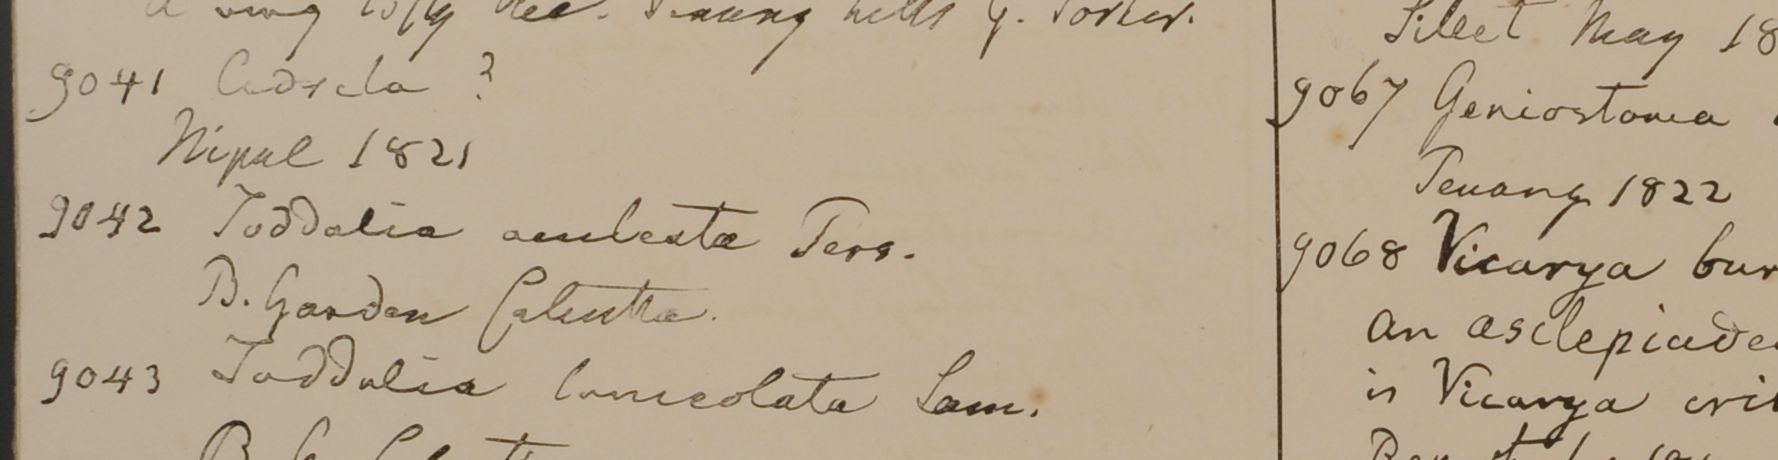 Penang hills G. Porter.
9041 Cedrela ?
Nipal 1821
9042 Toddalia aculeata Pers.
B. Garden Calcutta.
9043 Toddalia lanceolata Lam.
Silet May 18
9067 Geniostoma
Penang 1822
9068 Vicarya
an asclepiade
is Vicarya